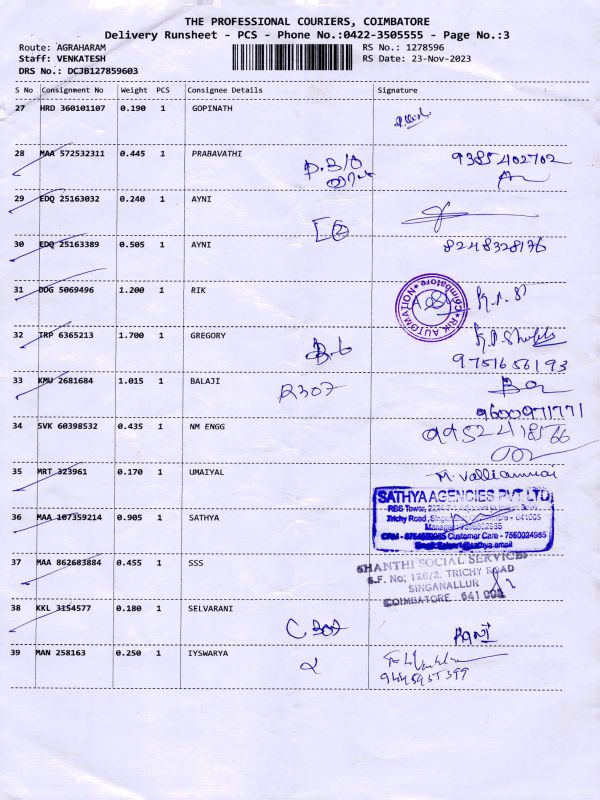 THE PROFESSIONAL COURIERS, COIMBATORE
Delivery Runsheet - PCS - Phone No.:0422-3505555 - Page No.:3
Route: AGRAHARAM
RS No.: 1278596
Staff: VENKATESH
RS Date: 23-Nov-2023
DRS No.: DCJB127859603
S No Consignment No Weight PCS Consignee Details Signature
27 HRD 360101107 0.190 1 GOPINATH
28 MAA 572532311 0.445 1 PRABAVATHI 9385402702
29 EDQ 25163032 0.240 1 AYNI
30 EDQ 25163389 0.505 1 AYNI 8248328176
31 DDG 5069496 1.200 1 RIK
RIK AUTOMATION Coimbatore
32 TRP 6365213 1.700 1 GREGORY
9751656193
33 KMU 2681684 1.015 1 BALAJI R307
9600971771
34 SVK 60398532 0.435 1 NM ENGG 9952418566
35 MRT 323961 0.170 1 UMAIYAL M. Valliammai
36 MAA 107359214 0.905 1 SATHYA
SATHYA AGENCIES PVT LTD
RBS Tower,
Trichy Road, 641005
Customer Care - 7550024985
37 MAA 862683884 0.455 1 SSS
SHANTHI SOCIAL SERVICES
S.F. NO; 126/2. TRICHY ROAD
SINGANALLUR
COIMBATORE 641 005
38 KKL 3154577 0.180 1 SELVARANI C 307 RANI
39 MAN 258163 0.250 1 IYSWARYA